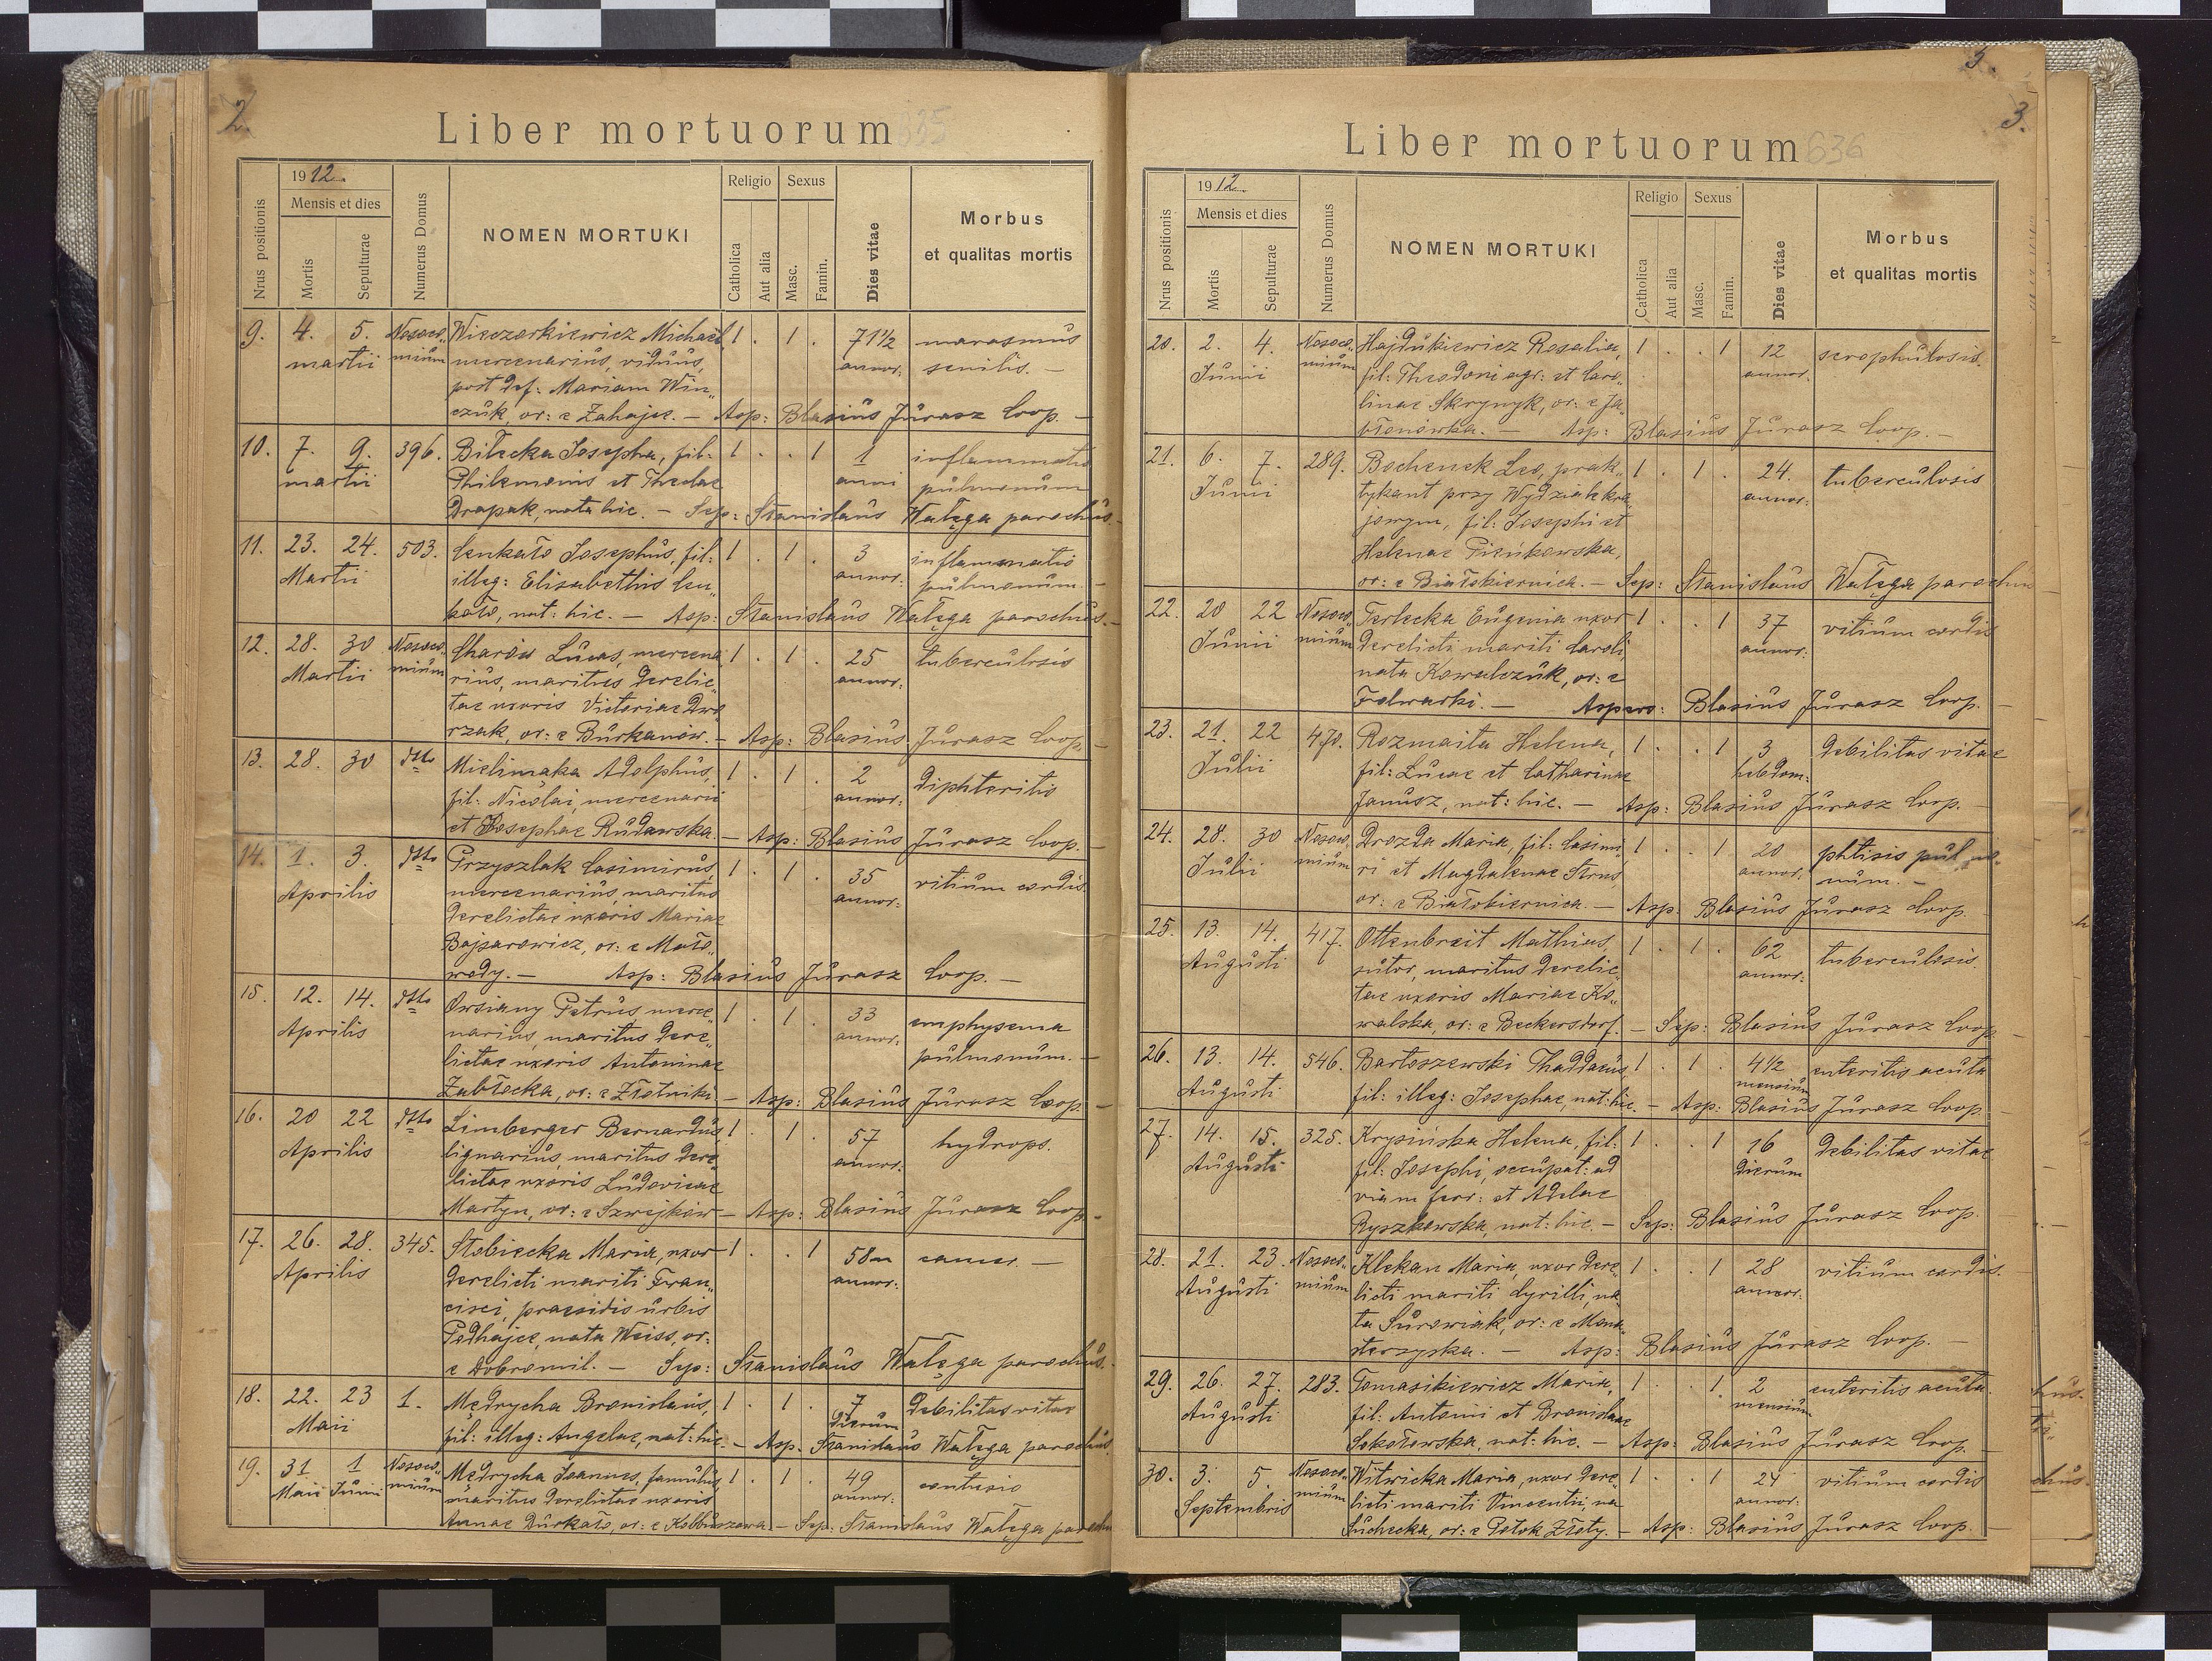 2.
Liber mortuorum 335
Nrus positionis
1912.
Mensis et dies
Mortis
Sepulturae
Numerus Domus
NOMEN MORTUKI
Religio
Catholica
Aut alia
Sexus
Masc.
Famin.
Dies vitae
Morbus
et qualitas mortis
9. 4. 5. Nosoco„ Wieczorkiewicz Michael, 1 . 1 . 71½ marasmus
martii mium mercenarius, viduus, annor: senilis. —
post def: Mariam Win„
czuk, or: e Zahajce. — Asp: Blasius Jurasz Coop. —
10. 7. 9. 396. Bilecka Josepha, fil: 1 . . 1 1 inflammatio
martii Philemonis et Theclae anni pulmonum
Drapak, nata hic. — Sep: Stanislaus Wałęga parochus. —
11. 23. 24. 503. Cenkało Josephus, fil: 1 . 1 . 3 inflammatio
Martii illeg: Elisabethis Cen„ annor: pulmonum. —
kało, nat: hic. — Asp: Stanislaus Wałęga parochus. —
12. 28. 30 Nosoco„ Charów Lucas, mercena„ 1 . 1 . 25 tuberculosis
Martii mium rius, maritus derelic„ annor:
tae uxoris Victoriae Dwo„
rzak, or: e Burkanów. — Asp: Blasius Jurasz Coop. —
13. 28. 30 dtto Mielimąka Adolphus, 1 . 1 . 2 diphteritis
fil: Nicolai, mercenarii annor:
et Josephae Rudawska. — Asp: Blasius Jurasz Coop. —
14. 1. 3. dtto Przyszlak Casimirus, 1 . 1 . 35 vitium cordis
Aprilis mercenarius, maritus annor:
derelictae uxoris Mariae
Bojzarowicz, or: e Mało„
wody. — Asp: Blasius Jurasz Coop. —
15. 12. 14. dtto Owsiany Petrus, merce„ 1 . 1 . 33 emphysema
Aprilis narius, maritus dere„ annor: pulmonum. —
lictae uxoris Antoninae
Zabłocka, or: e Złotniki — Asp: Blasius Jurasz Coop. —
16. 20 22 dtto Limberger Bernardus, 1 . 1 . 57 hydrops.
Aprilis lignarius, maritus dere„ annor:
lictae uxoris Ludovicae
Martyn, or: e Szwejków — Asp: Blasius Jurasz Coop. —
17. 26. 28. 345. Stobiecka Maria, uxor 1 . . 1 58 cancer. —
Aprilis derelicti mariti Fran„ annor:
cisci, praesidis urbis
Podhajce, nata Weiss, or:
e Dobromil. — Sep: Stanislaus Wałęga parochus.
18. 22. 23 1. Mędrycha Bronislaus, 1 . 1 . 7 debilitas vitae
Maii fil: illeg: Angelae, nat: hic. — dierum Asp. Stanislaus Wałęga parochus
19. 31 1 Nosoco„ Mędrycha Joannes, famulus, 1 . 1 . 49 contusio
Maii Junii mium maritus derelictae uxoris annor:
Annae Durkało, or: e Kolbuszowa — Sep: Stanislaus Wałęga paroch
3.
3.
Liber mortuorum 636
Nrus positionis
1912.
Mensis et dies
Mortis
Sepulturae
Numerus Domus
NOMEN MORTUKI
Religio
Catholica
Aut alia
Sexus
Masc.
Famin.
Dies vitae
Morbus
et qualitas mortis
20. 2. 4. Nosoco„ Hajdukiewicz Rosalia, 1 . . 1 12 scrophulosis.
Junii mium fil: Theodori agr: et Caro„ annor.
linae Skrynyk, or: e Ja„
błonówka. — Asp: Blasius Jurasz Coop. —
21. 6. 7. 289. Bochenek Leo, prak„ 1 . 1 . 24. tuberculosis
Junii tykant przy Wydziale kra„ annor:
jowym, fil: Josephi et
Helenae Pieńkowska,
or: e Białokiernica. — Sep: Stanislaus Wałęga parochus
22. 20 22 Nosoco„ Terlecka Eugenia uxor 1 . . 1 37 vitium cordis
Junii mium derelicti mariti Caroli, annor:
nata Kowalczuk, or: e
Folwarki. — Asp: Blasius Jurasz Coop. —
23. 21. 22 470. Rozmaita Helena, 1 . . 1 3 debilitas vitae
Julii fil: Lucae et Catharinae hebdom:
Janusz, nat: hic. — Asp: Blasius Jurasz Coop. —
24. 28. 30 Nosoco„ Drozda Maria, fil: Casimi„ 1 . . 1 20 phtisis pulmo„
Julii mium ri et Magdalenae Strus, annor. num. —
or: e Białokiernica. — Asp: Blasius Jurasz Coop.
25. 13. 14. 417. Ottenbreit Mathias, 1 . 1 . 62 tuberculosis.
Augusti sutor, maritus derelic„ annor:
tae uxoris Mariae Ko„
walska, or: e Beckersdorf. — Sep: Blasius Jurasz Coop. —
26. 13. 14. 546. Bartoszewski Thaddaeus, 1 . 1 . 4½ enteritis acuta
Augusti mensium
fil: illeg: Josephae, nat: hic. — Asp: Blasius Jurasz Coop.
27. 14. 15. 325. Krysińska Helena, fil: 1 . 1 16 debilitas vitae
Augusti fil: Josephi, occupat: ad dierum
viam ferr: et Adelae
Ryszkowska, nat: hic. — Sep: Blasius Jurasz Coop.
28. 21. 23. Nosoco„ Klekan Maria, uxor dere„ 1 . . 1 28 vitium cordis.
Augusti mium licti mariti Cyrilli, na„ annor.
ta Surowiak, or: e Mona„
sterzyska. — Asp: Blasius Jurasz Coop. —
29. 26. 27. 283. Tomasikiewicz Maria, 1 . . 1. 2 enteritis acuta.
Augusti fil: Antonii et Bronislaae mensium
Sokołowska, nat: hic. — Asp: Blasius Jurasz Coop. —
30. 3. 5. Nosoco„ Witwicka Maria, uxor dere„ 1 . . 1 24 vitium cordis
Septembris mium licti mariti Vincentii, na„ annor:
Suchecka, or: e Potok Złoty. — Asp: Blasius Jurasz Coop. —